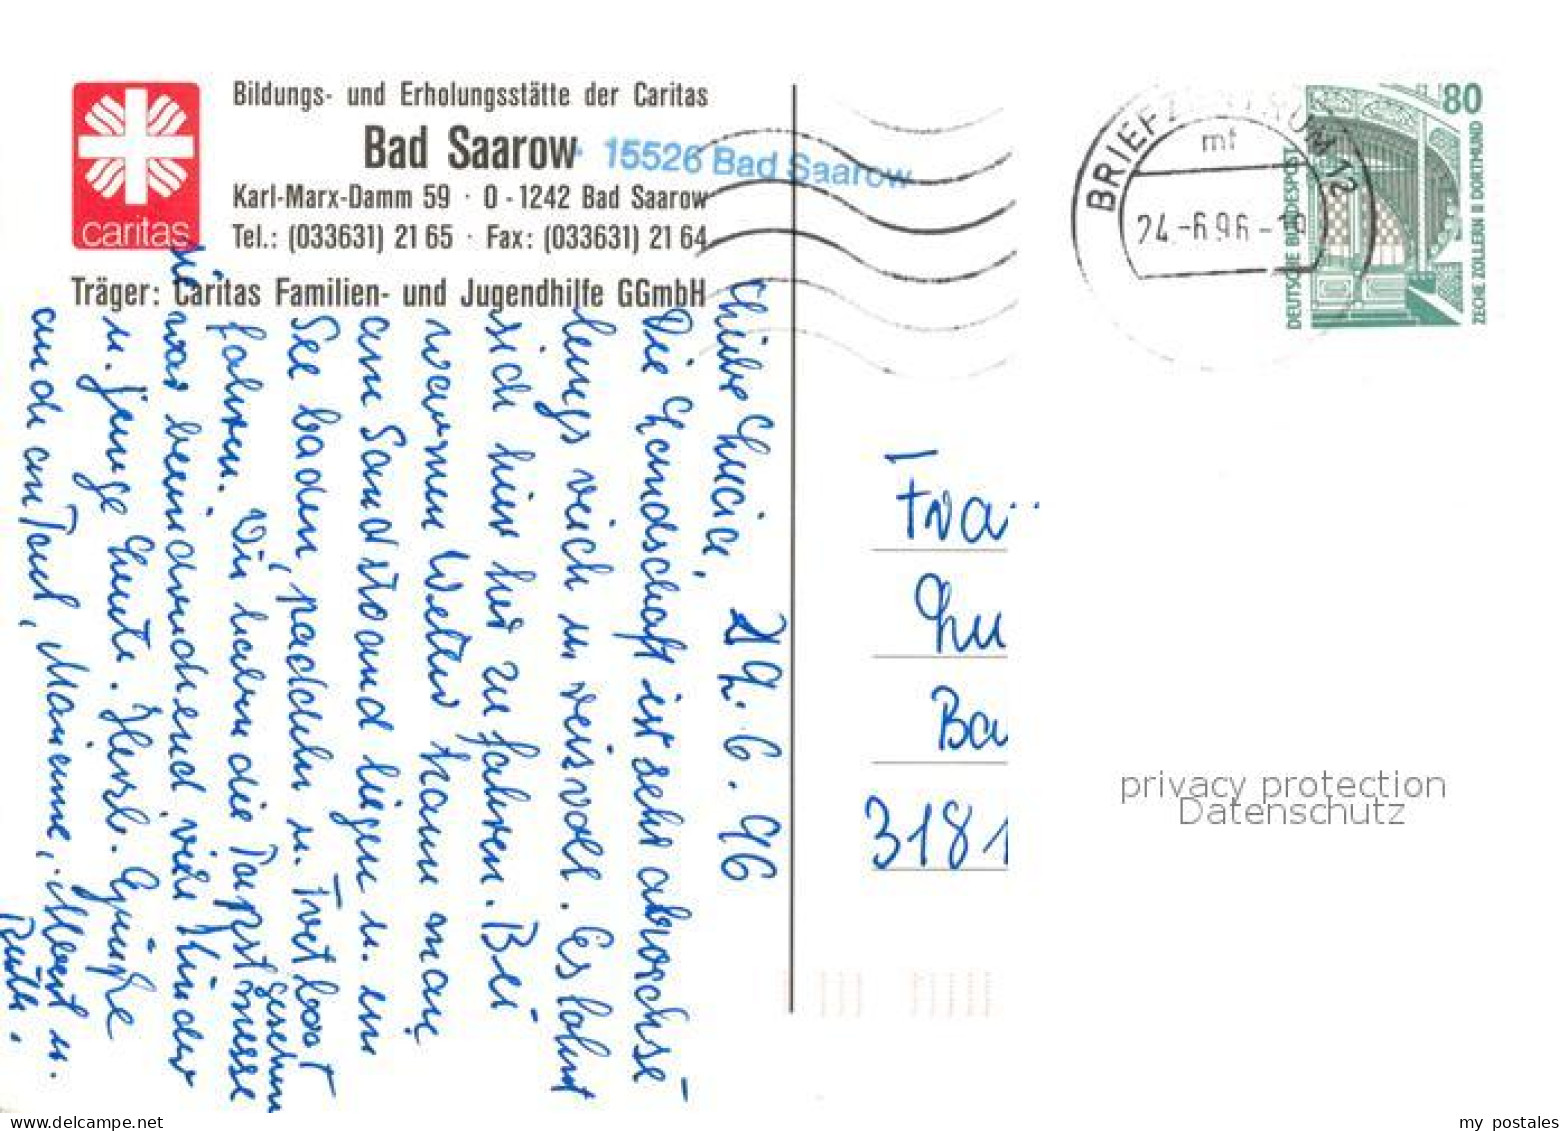 Bildungs- und Erholungsstätte der Caritas
Bad Saarow
15526 Bad Saarow
Karl-Marx-Damm 59 · O - 1242 Bad Saarow
Tel.: (033631) 21 65 · Fax: (033631) 21 64
caritas
Träger: Caritas Familien- und Jugendhilfe GGmbH
BRIEFZENTRUM 12
mf
24.-6.96-18
80
DEUTSCHE BUNDESPOST
ZECHE ZOLLERN II DORTMUND
Liebe Lucia, 22.6.96
Die Landschaft ist sehr abwechse-
lungsreich u. reizvoll. Es lohnt
sich hier her zu fahren. Bei
warmen Wetter kann man
am Sandstrand liegen u. im
See baden, paddeln u. Tretboot
fahren. Wir haben die Papstmesse gesehen
sie war beeindruckend viele Kinder
u. junge Leute. Herzl. Grüße
auch an Paul, Marianne, Albert u.
Ruth.
Fra
Lu
Ba
3181
privacy protection
Datenschutz
my postales